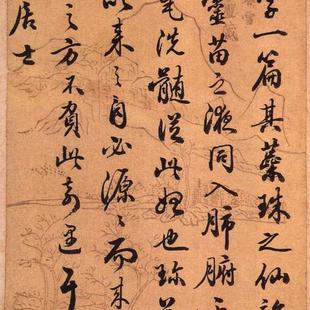 字一篇其蘂珠之仙
靈苗之液同入肺腑
毛洗髓從此始也珎
来之自必源〻而来
之方不負此奇遇
居士